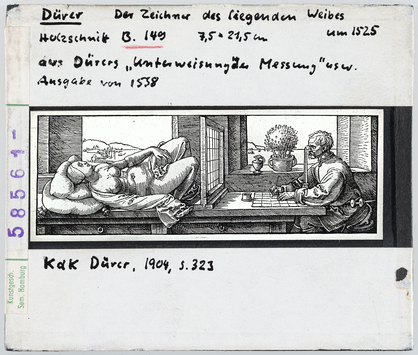 Dürer Der Zeichner des liegenden Weibes
Holzschnitt B. 149 7,5 * 21,5 cm um 1525
aus Dürers „Unterweisung der Messung" usw.
Ausgabe von 1538
58561-
Kunstgesch.
Sem. Hamburg
KdK Dürer, 1904, S. 323